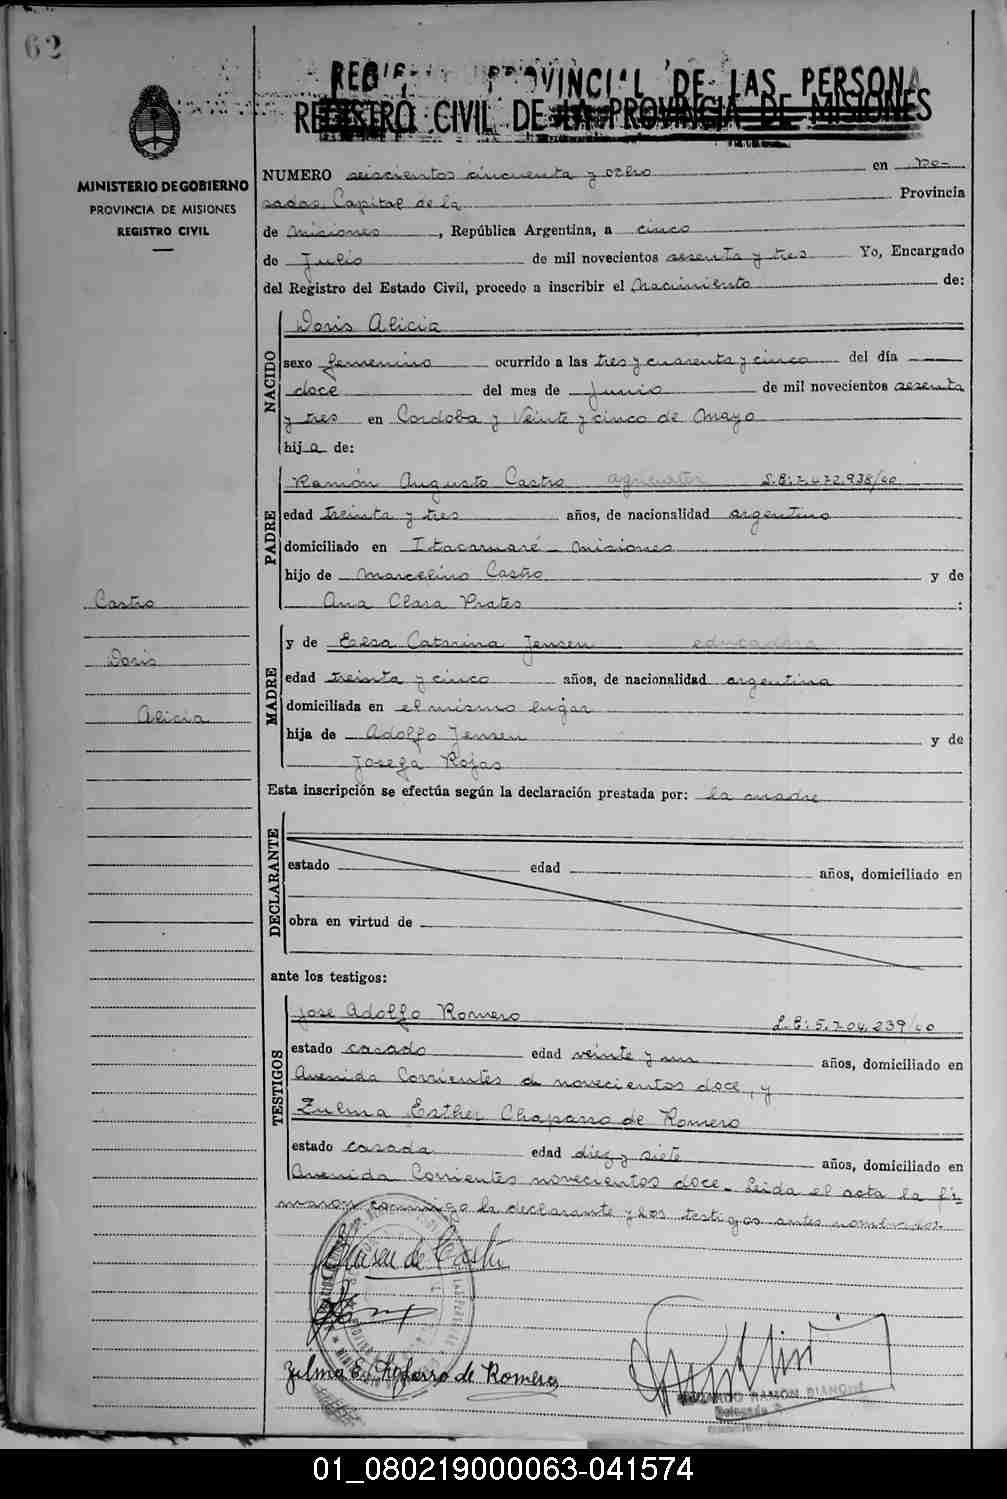 62
REGI PROVINCIAL DE LAS PERSONA
REGISTRO CIVIL DE LA PROVINCIA DE MISIONES
MINISTERIO DE GOBIERNO
PROVINCIA DE MISIONES
REGISTRO CIVIL
NUMERO seiscientos cincuenta y ocho en Po-
sadas, Capital de la Provincia
de Misiones, República Argentina, a cinco
de Julio de mil novecientos sesenta y tres Yo, Encargado
del Registro del Estado Civil, procedo a inscribir el Nacimiento de:
NACIDO
Doris Alicia
sexo femenino ocurrido a las tres y cuarenta y cinco del día
doce del mes de Junio de mil novecientos sesenta
y tres en Cordoba y Veinte y cinco de Mayo
hija de:
PADRE
Ramón Augusto Castro agricultor L.E:7.472.938/40
edad treinta y tres años, de nacionalidad argentino
domiciliado en Itacaruaré - Misiones
hijo de Marcelino Castro y de
Ana Clara Prates :
Castro
Doris
Alicia
MADRE
y de Elsa Catarina Jensen educadora
edad treinta y cinco años, de nacionalidad argentina
domiciliada en el mismo lugar
hija de Adolfo Jensen y de
Josefa Rojas
Esta inscripción se efectúa según la declaración prestada por: la madre
DECLARANTE
estado edad años, domiciliado en
obra en virtud de
ante los testigos:
TESTIGOS
Jose Adolfo Romero L.E:5.704.239/40
estado casado edad veinte y un años, domiciliado en
Avenida Corrientes novecientos doce, y
Zulma Esther Chaparro de Romero
estado casada edad diez y siete años, domiciliado en
Avenida Corrientes novecientos doce - Leida el acta la fir
maron conmigo la declarante y los testigos antes nombrados.
EJensen de Castro
Zulma E. Chaparro de Romero
RAMON BIANCHI
01_080219000063-041574